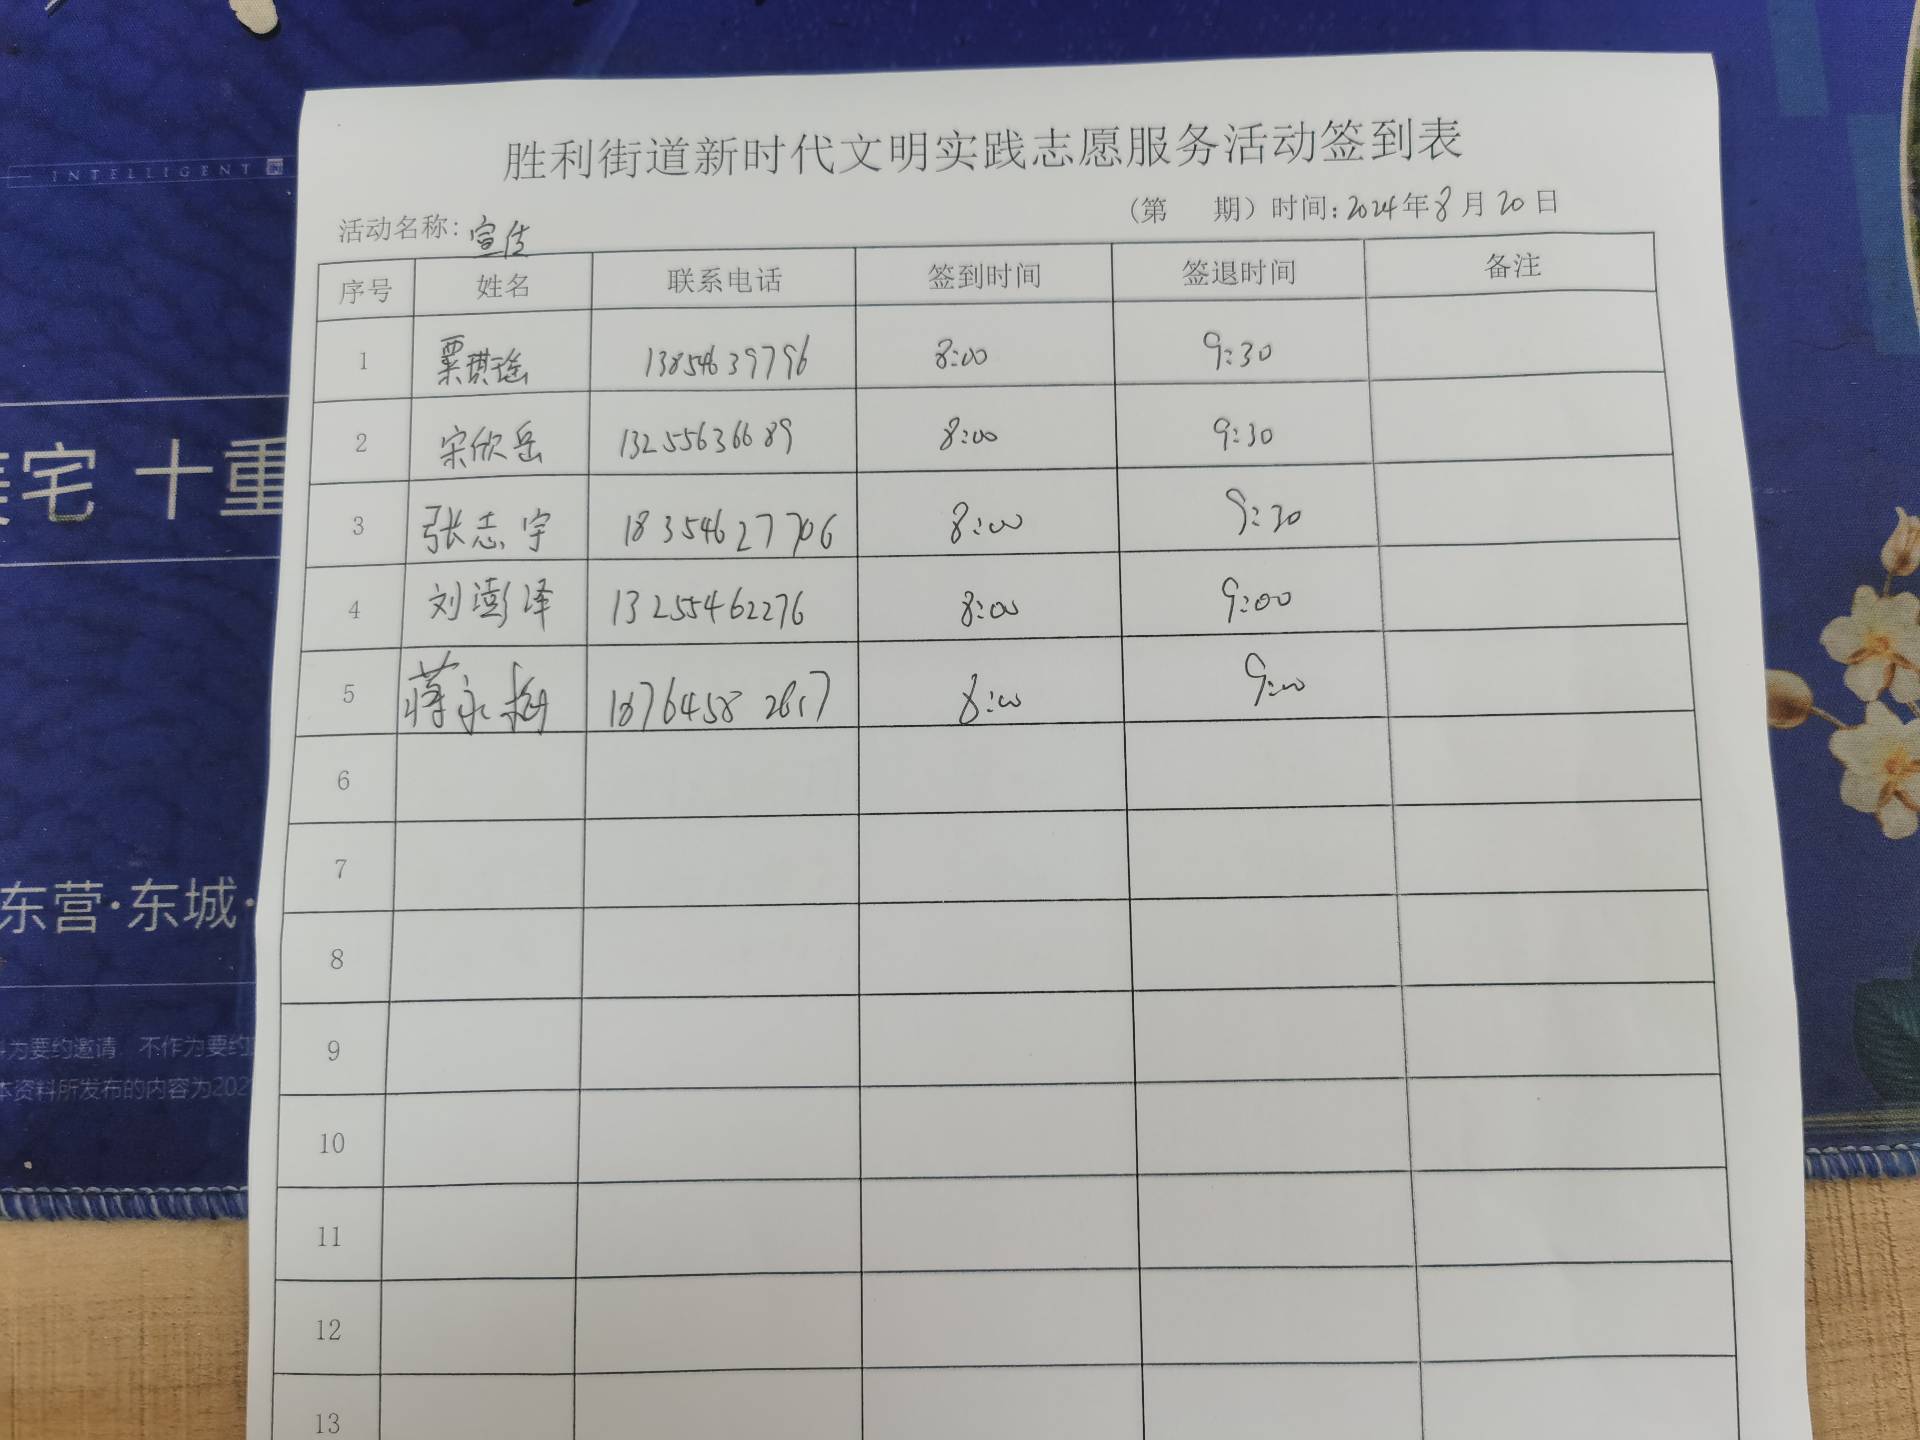 INTELLIGENT
宅 十重
东营·东城·
为要约邀请 不作为要约
本资料所发布的内容为202
胜利街道新时代文明实践志愿服务活动签到表
(第 期) 时间:2024年8月20日
活动名称:宣传
序号 姓名 联系电话 签到时间 签退时间 备注
1 粟琪瑶 13854639796 8:00 9:30
2 宋欣岳 13255636689 8:00 9:30
3 张志宇 18354627706 8:00 9:30
4 刘澎泽 13255462276 8:00 9:00
5 蒋永梅 18764582817 8:00 9:00
6
7
8
9
10
11
12
13